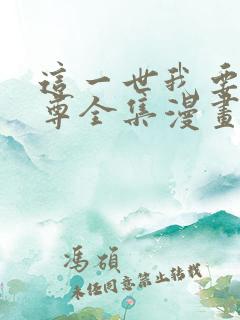 這一世我要
尊全集漫畫
馮碩
未經同意禁止轉載